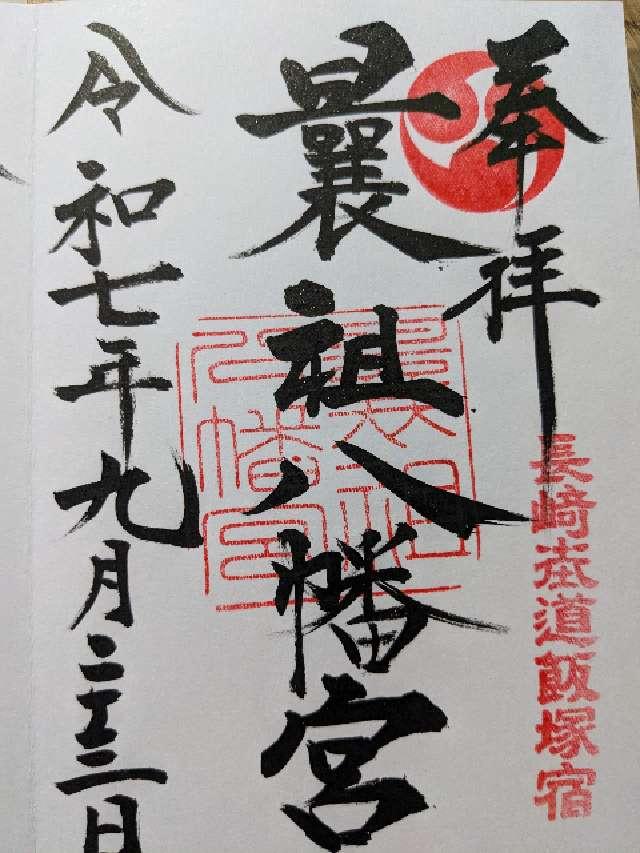 奉拝
長崎街道飯塚宿
曩祖八幡宮
曩祖
八幡宮
令和七年九月二十三日